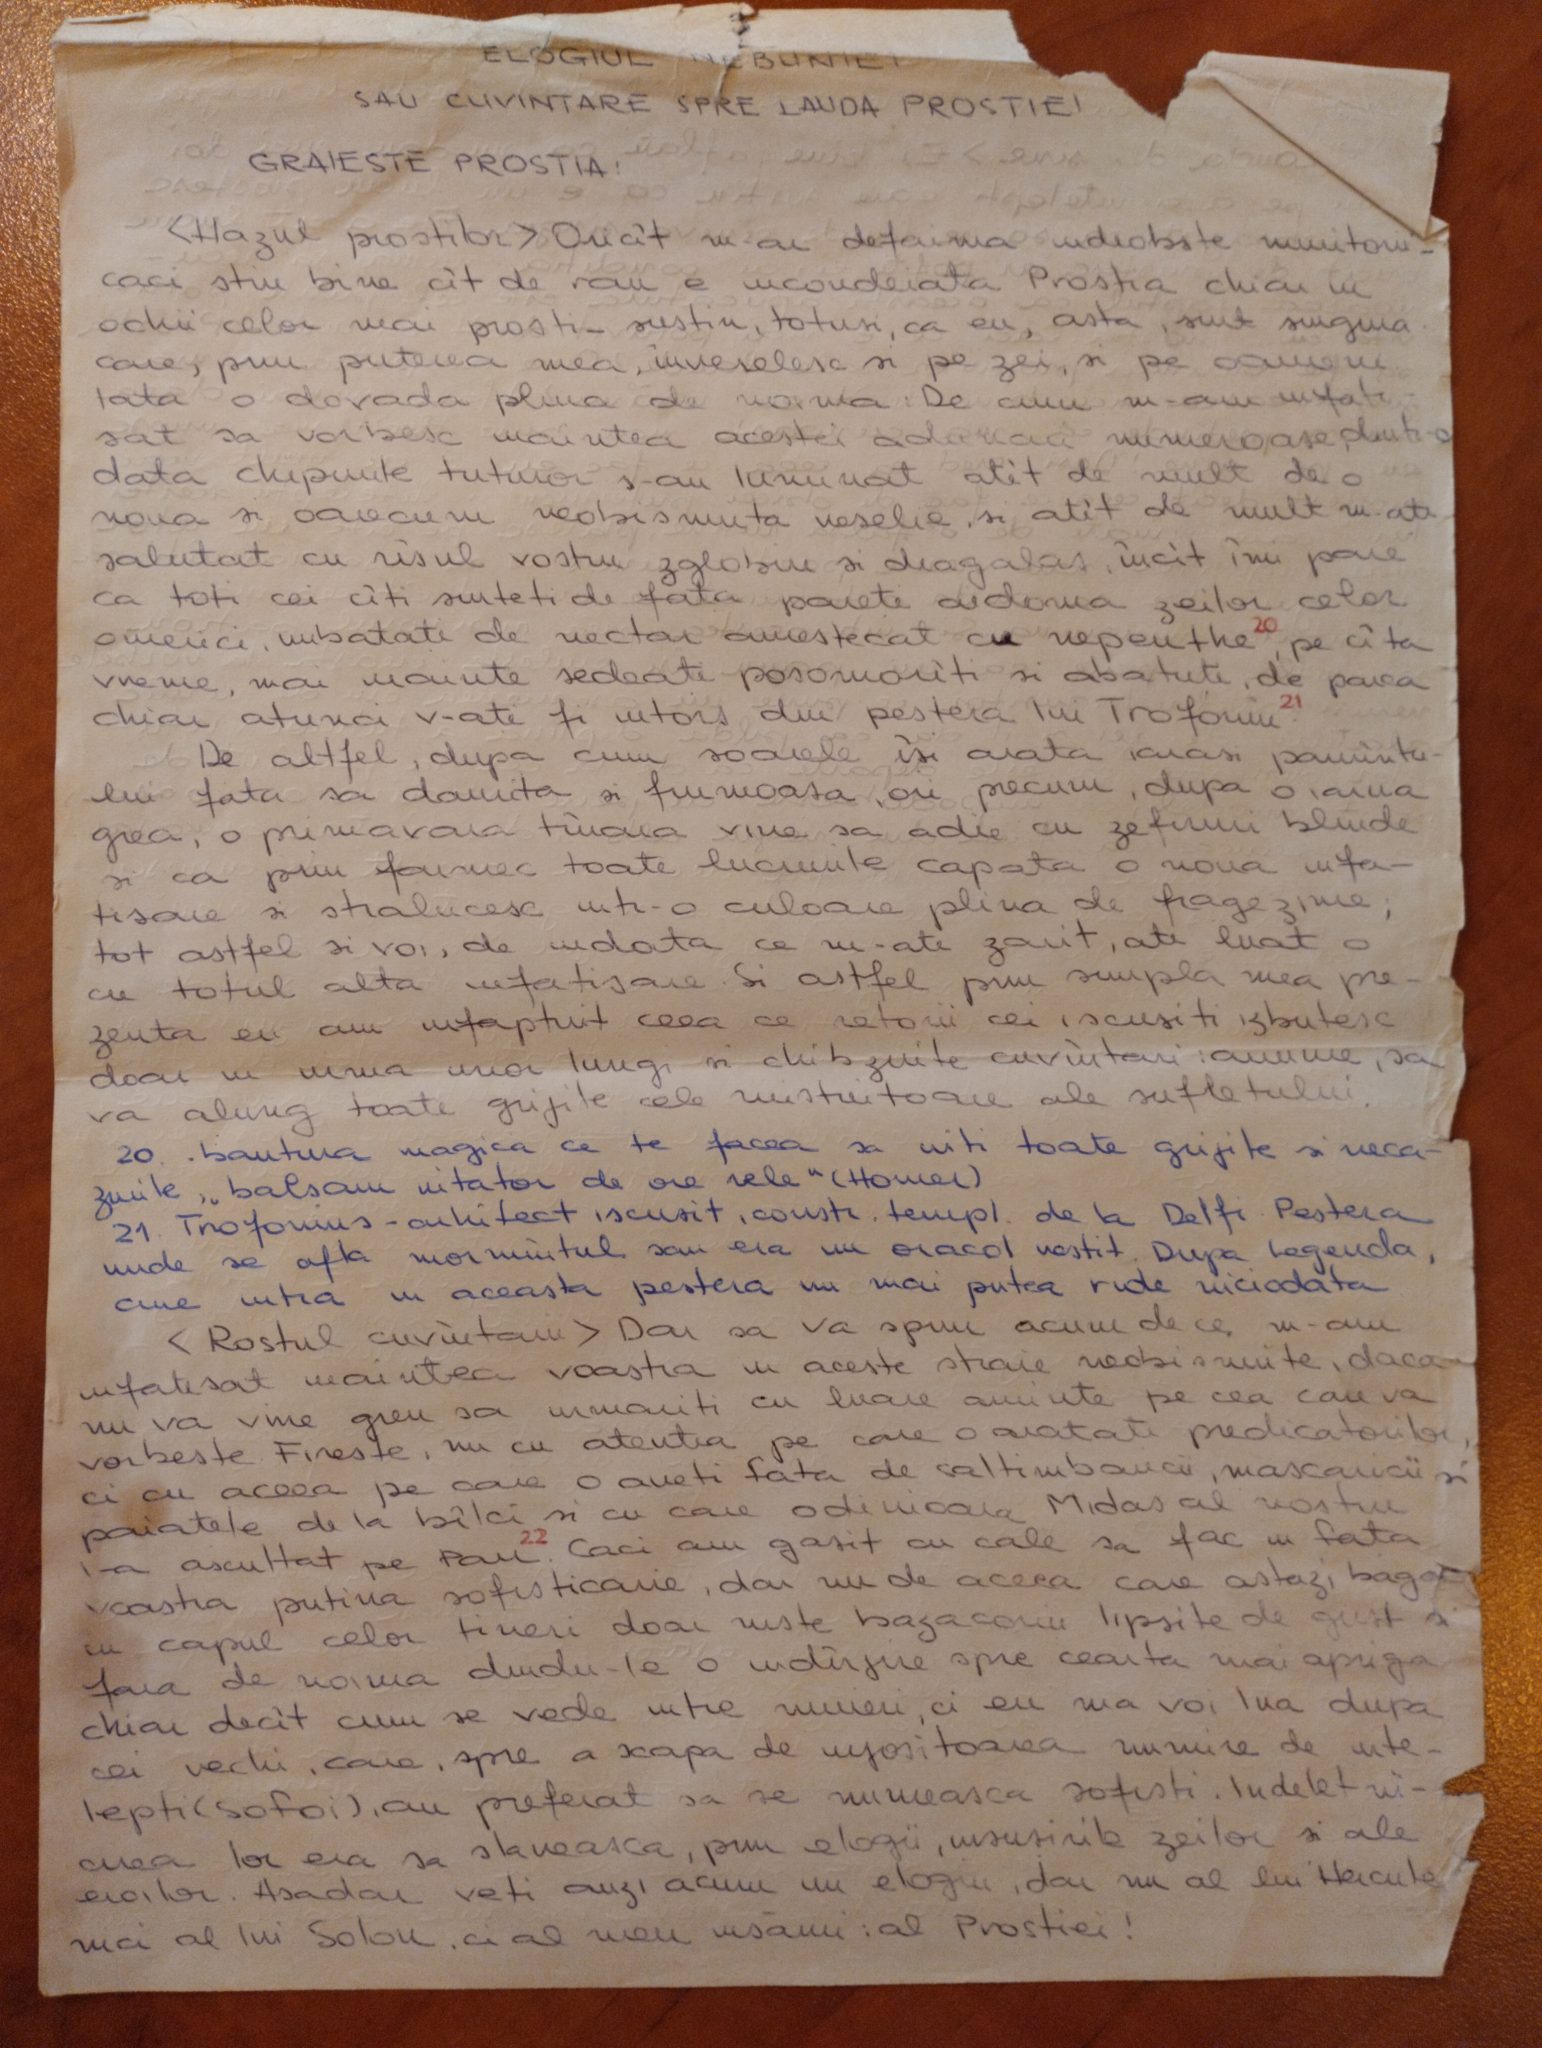 ELOGIUL NEBUNIEI
SAU CUVINTARE SPRE LAUDA PROSTIEI
GRAIESTE PROSTIA:
<Hazul prostilor> Oricît m-ar defaima indeobste muritorii-
caci stiu bine cît de rau e incondeiata Prostia chiar in
ochii celor mai prosti- sustin, totusi, ca eu, asta, sint singura
care, prin puterea mea, înveselesc si pe zei, si pe oameni
Iata o dovada plina de noima: De cum m-am infati-
sat sa vorbesc inaintea acestei adunari numeroase, dintr-o
data chipurile tuturor s-au luminat atît de mult de o
noua si oarecum neobisnuita veselie, si atît de mult m-ati
salutat cu rîsul vostru zglobiu si dragalas, încît îmi pare
ca toti cei cîti sinteti de fata pareti aidoma zeilor celor
omerici, imbatati de nectar amestecat cu nepenthe 20, pe cîta
vreme, mai inainte sedeati posomorîti si abatuti, de parca
chiar atunci v-ati fi intors din pestera lui Trofoniu 21.
De altfel, dupa cum soarele îsi arata iarasi pamîntu-
lui fata sa daurita si frumoasa, ori precum, dupa o iarna
grea, o primavara tînara vine sa adie cu zefiruri blinde
si ca prin farmec toate lucrurile capata o noua infa-
tisare si stralucesc intr-o culoare plina de fragezime;
tot astfel si voi, de indata ce m-ati zarit, ati luat o
cu totul alta infatisare. Si astfel prin simpla mea pre-
zenta eu am infaptuit ceea ce retorii cei iscusiti izbutesc
doar in urma unor lungi si chibzuite cuvîntari: anume, sa
va alung toate grijile cele mistuitoare ale sufletului.
20. bautura magica ce te facea sa uiti toate grijile si neca-
zurile, "balsam uitator de ore rele" (Homer)
21. Trofonius-arhitect iscusit, constr. templ. de la Delfi. Pestera
unde se afla mormîntul sau era un oracol vestit. Dupa legenda,
cine intra in aceasta pestera nu mai putea ride niciodata
<Rostul cuvîntarii> Dar sa va spun acum de ce m-am
infatisat inaintea voastra in aceste straie neobisnuite, daca
nu va vine greu sa urmariti cu luare aminte pe cea care va
vorbeste. Fireste, nu cu atentia pe care o aratati predicatorilor,
ci cu aceea pe care o aveti fata de saltimbancii, mascaricii si
paiatele de la bîlci si cu care odinioara Midas al nostru
l-a ascultat pe Pan 22. Caci am gasit cu cale sa fac in fata
voastra putina sofisticarie, dar nu de aceea care astazi baga
in capul celor tineri doar niste bazaconii lipsite de gust si
fara de noima dindu-le o indîrjire spre cearta mai apriga
chiar decît cum se vede intre muieri, ci eu ma voi lua dupa
cei vechi, care, spre a scapa de injositoarea numire de inte-
lepti (sofoi), au preferat sa se numeasca sofisti. Indeletni-
cirea lor era sa slaveasca, prin elogii, insusirile zeilor si ale
eroilor. Asadar veti auzi acum un elogiu, dar nu al lui Hercule
nici al lui Solon, ci al meu insami: al Prostiei!